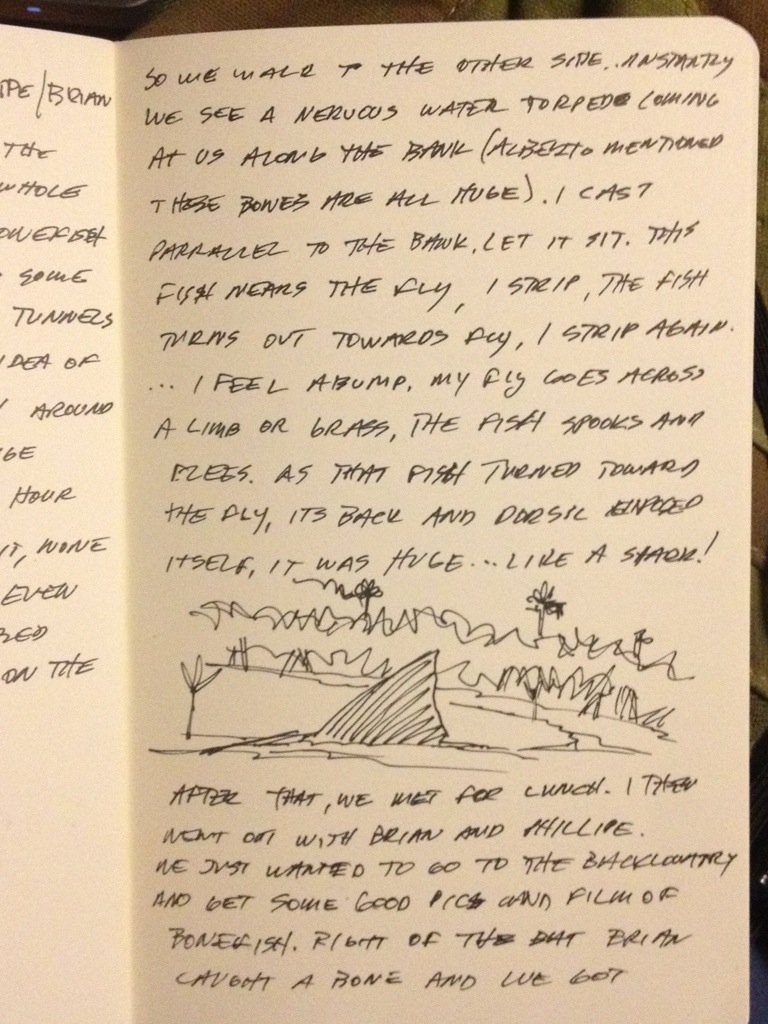 PE/BRIAN
THE
WHOLE
ONEFISH
SOME
TUNNELS
IDEA OF
AROUND
GE
HOUR
IT, NONE
EVEN
RED
ON THE
SO WE WALK TO THE OTHER SIDE. INSTANTLY
WE SEE A NERVOUS WATER TORPEDO COMING
AT US ALONG THE BANK (ALBERTO MENTIONED
THESE BONES ARE ALL HUGE). I CAST
PARRALLEL TO THE BANK, LET IT SIT. THIS
FISH NEARS THE FLY, I STRIP, THE FISH
TURNS OUT TOWARDS FLY, I STRIP AGAIN.
... I FEEL A BUMP, MY FLY GOES ACROSS
A LIMB OR GRASS, THE FISH SPOOKS AND
FLEES. AS THAT FISH TURNED TOWARD
THE FLY, ITS BACK AND DORSIL EXPOSED
ITSELF, IT WAS HUGE... LIKE A SHARK!
AFTER THAT, WE MET FOR LUNCH. I THEN
WENT OUT WITH BRIAN AND PHILLIPE.
WE JUST WANTED TO GO TO THE BACKCOUNTRY
AND GET SOME GOOD PICS AND FILM OF
BONEFISH. RIGHT OF THE BAT BRIAN
CAUGHT A BONE AND WE GOT